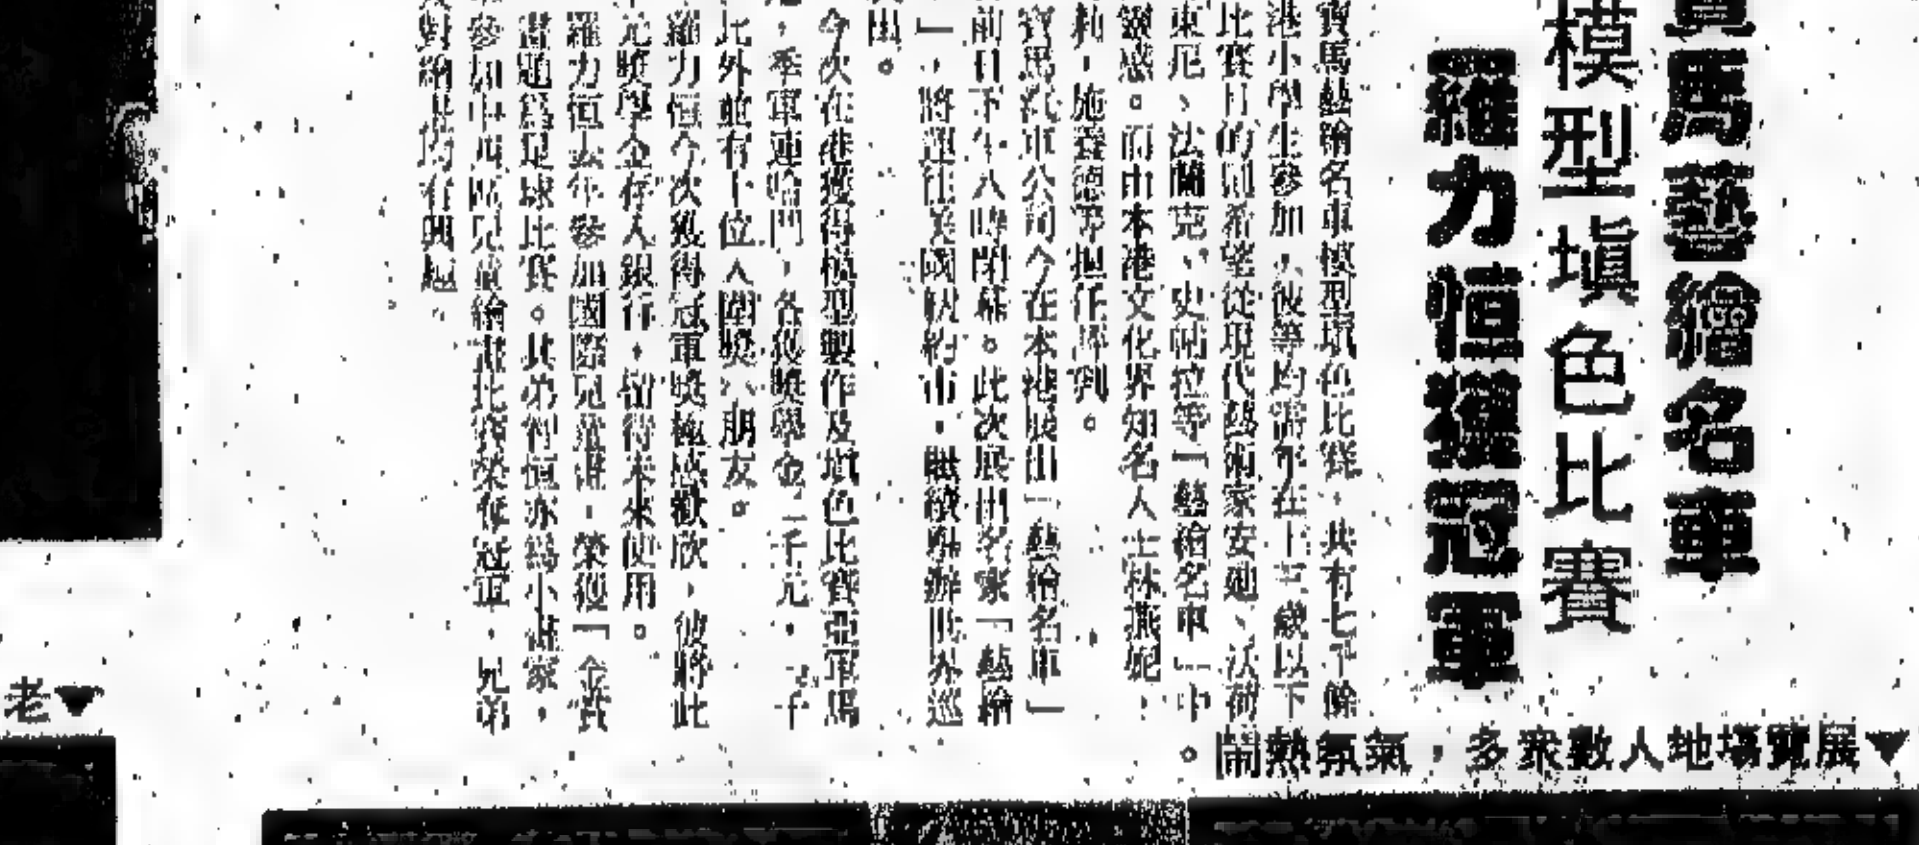 寶馬藝繪名車
模型填色比賽
羅力恒獲冠軍
寶馬藝繪名車模型填色比賽,共有七千餘
港小學生參加,彼等均需年在十三歲以下
比賽目的固希望從現代藝術家安廸、沃荷
東尼、法蘭克、史帖拉等「藝繪名車」中
靈感。而由本港文化界知名人士林燕妮,
利,施養德等担任評判。
寶馬汽車公司今在本港展出「藝繪名車」
前日下午八時閉幕。此次展出名家「藝繪
」,將運往美國紐約市,繼續舉辦世界巡
出。
今次在港獲得模型製作及填色比賽亞軍馬
,季軍連 門,各獲獎學金二千元,一千
此外並有十位入圍獎小朋友。
羅力恒今次獲得冠軍獎極感歡欣,彼將此
元獎學金存入銀行,留待未來使用。
羅力恒去年參加國際兒童畫,榮獲「金賞
畫題為足球比賽。其弟智恒亦為小畫家,
參加中西區兒童繪畫比賽榮奪冠軍,兄弟
對繪畫均有興趣。
▼展覽場地人數衆多,氣氛熱鬧。
▼老